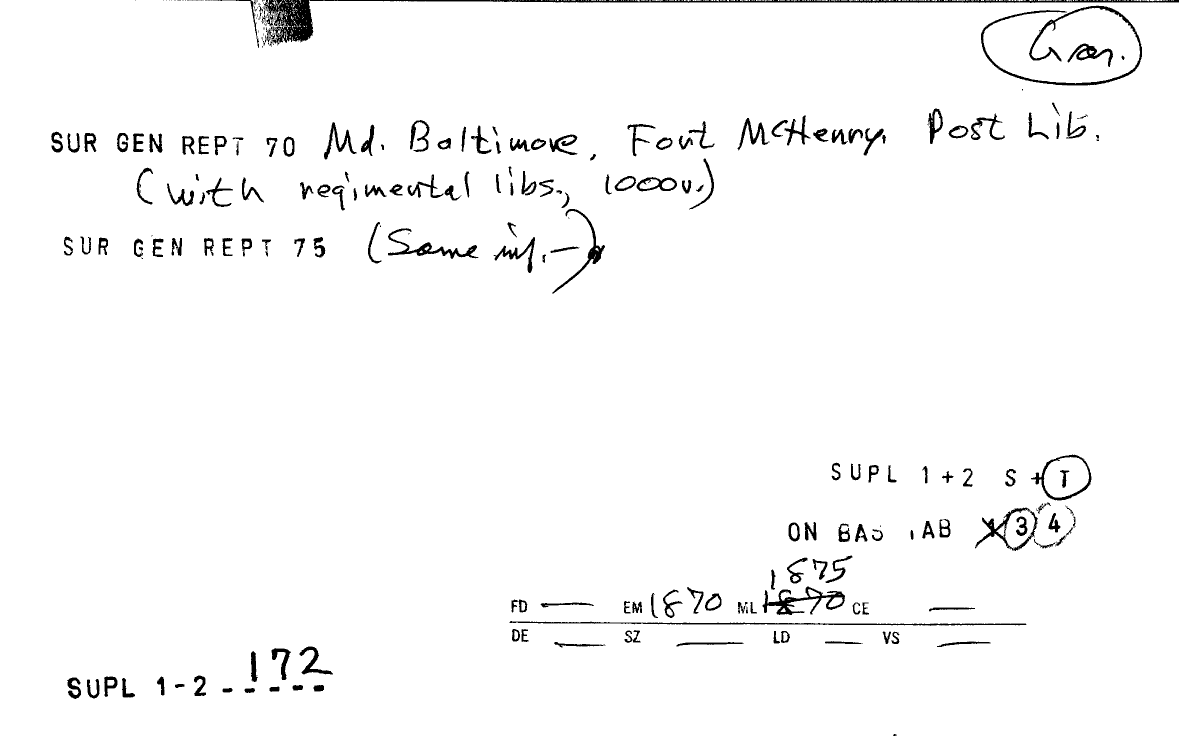 Gran.
SUR GEN REPT 70 Md. Baltimore, Fort McHenry, Post Lib.
(with regimental libs., 1000v.)
SUR GEN REPT 75 (Same inf. —)
SUPL 1+2 S + T
ON BAS TAB 3 4
1875
FD — EM 1870 ML 1870 CE —
DE — SZ — LD — VS —
SUPL 1-2 172